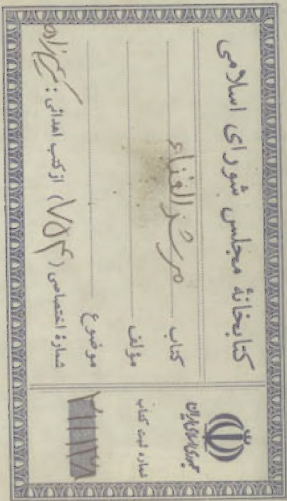 کتابخانهٔ مجلس شورای اسلامی
کتاب مرشد الغناء
مؤلف
موضوع
شمارهٔ اختصاصی (۷۵۴) از کتب اهدائی:
جمهوری اسلامی ایران
شماره ثبت کتاب